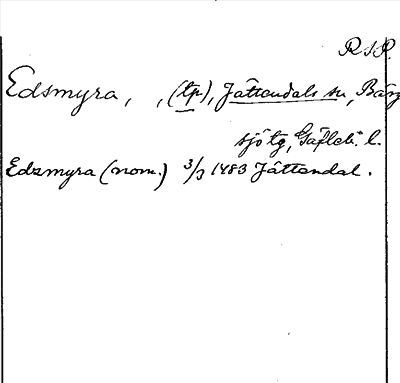 RSP.
Edsmyra, , (tp), Jättendals sn, Berg
sjö tg, Gäfleb. l.
Edzmyra (nom.) 3/3 1483 Jättendal.